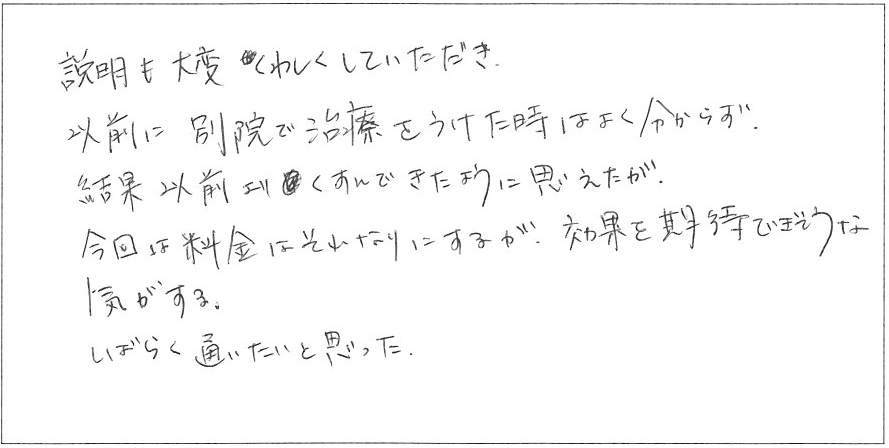 説明も大変くわしくしていただき、
以前に別院で治療をうけた時はよく分からず、
結果以前よりくすんできたように思えたが、
今回は料金はそれなりにするが、効果を期待できそうな
気がする。
しばらく通いたいと思った。